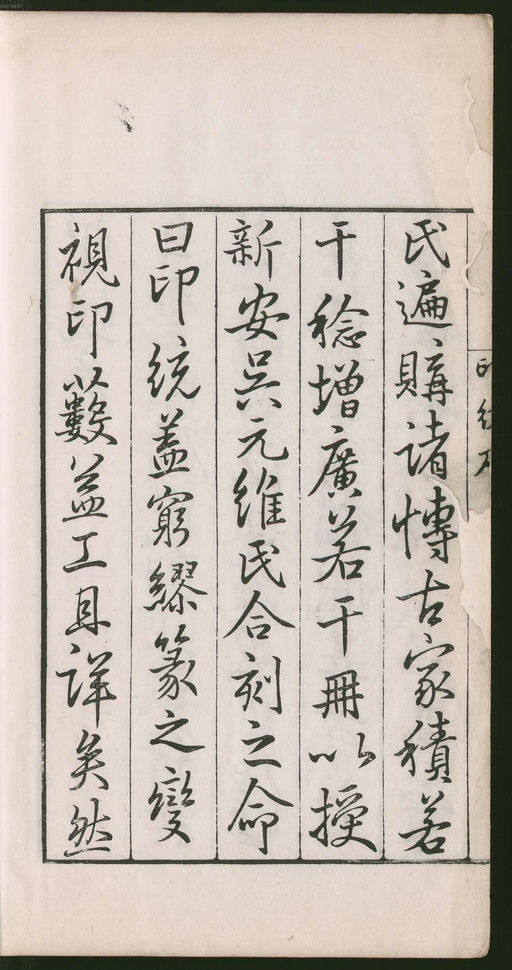 氏遍購諸慱古家積若
干稔增廣若干冊以授
新安吳元維氏合刻之命
曰印統盖窮繆篆之變
視印藪益工且詳矣然